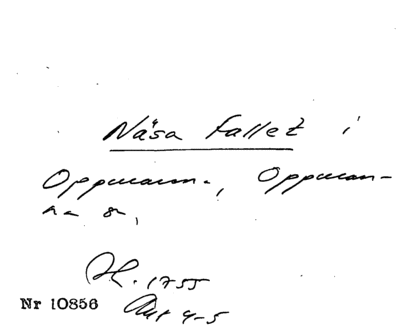 Näsa fallet i
Oppmanna, Oppman-
na sn,
H. 1755
Akt 4-5
Nr 10856